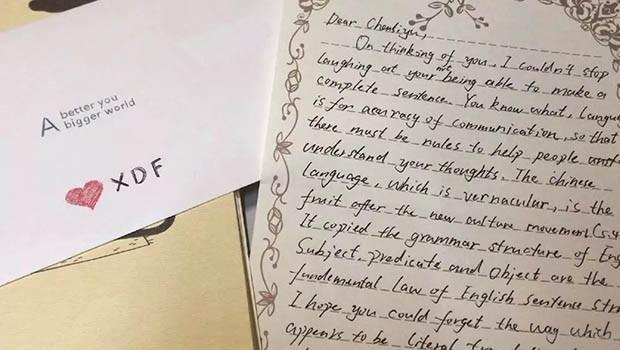 A better you
bigger world
XDF
Dear Chensiyu,
On thinking of you, I couldn't stop
laughing at your not being able to make a
complete sentence. You know what, langu
is for accuracy of communication, so that
there must be rules to help people
understand your thoughts. The chinese
language, which is vernacular, is the
fruit after the new culture movement (5.4
It copied the grammar structure of Eng
Subject, predicate and object are the
fundemental law of English sentence stru
I hope you could forget the way which
appears to be literal